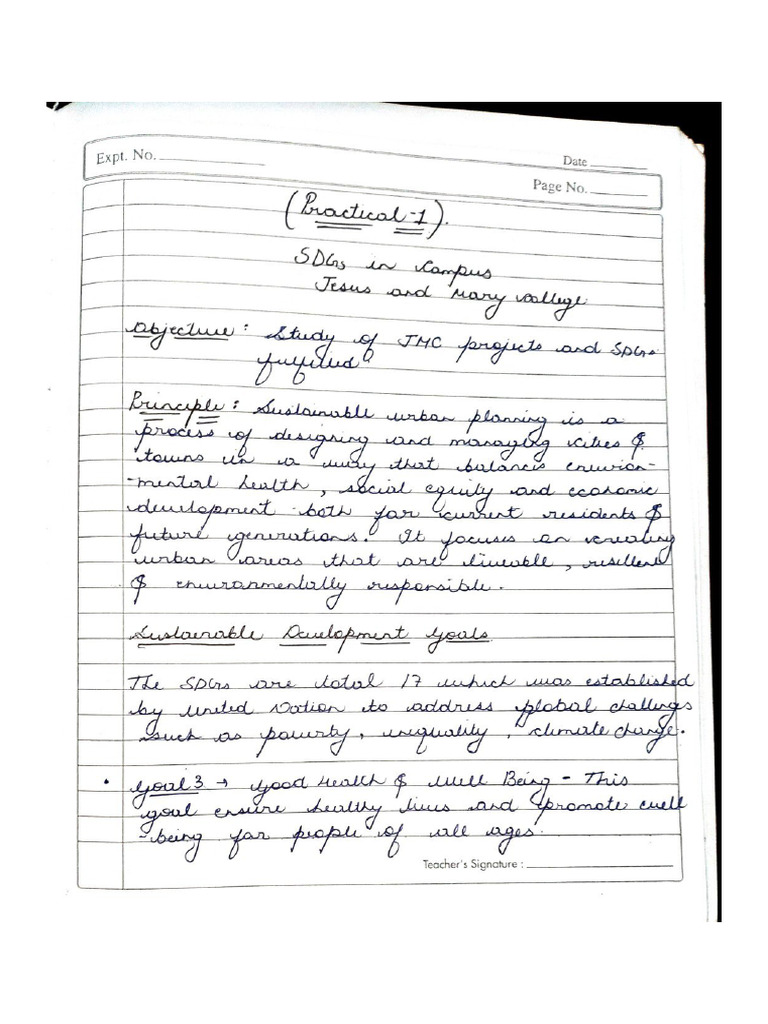 Expt. No.
Date
Page No.
(Practical-1).
SDGs in Campus
Jesus and Mary College
Objective : Study of JMC projects and SDGs
fulfilled
Principle : Sustainable urban planning is a
process of designing and managing cities &
towns in a way that balances environ-
-mental health, social equity and economic
development both for current residents &
future generations. It focuses on creating
urban areas that are liveable, resilient
& environmentally responsible.
Sustainable Development Goals
The SDGs are total 17 which was established
by United Nation to address global challenges
such as poverty, inequality, climate change.
• Goal 3 → Good Health & Well Being - This
goal ensure healthy lives and promote well
-being for people of all ages.
Teacher's Signature :